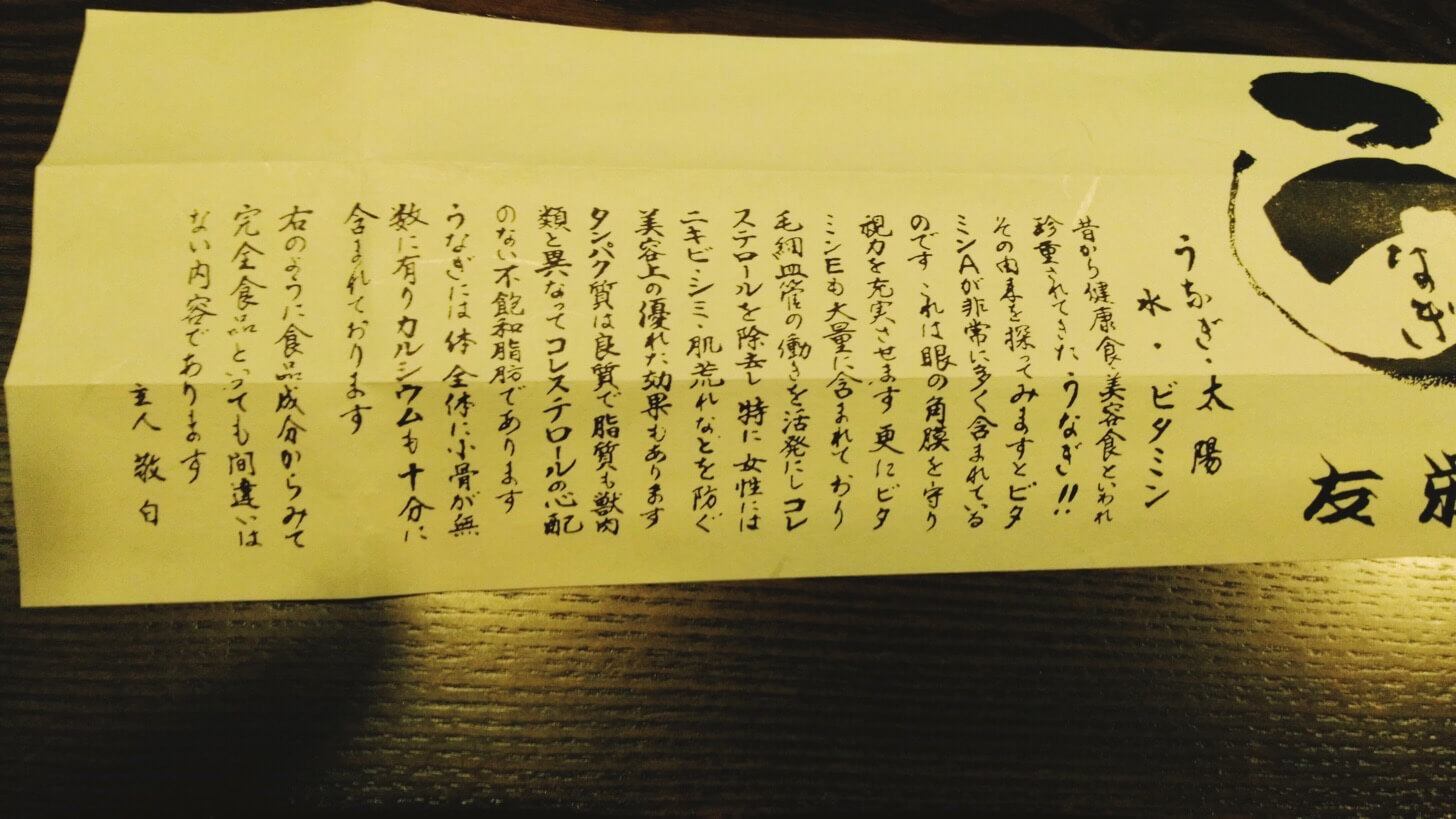 なぎ
友栄
うなぎ・太陽
水・ビタミン
昔から健康食・美容食といわれ
珍重されてきたうなぎ!!
その由来を探ってみますとビタ
ミンAが非常に多く含まれている
のです これは眼の角膜を守り
視力を充実させます 更にビタ
ミンEも大量に含まれており
毛細血管の働きを活発にしコレ
ステロールを除去し 特に女性には
ニキビ・シミ・肌荒れなどを防ぐ
美容上の優れた効果もあります
タンパク質は良質で脂質も獣肉
類と異なってコレステロールの心配
のない不飽和脂肪であります
うなぎには体全体に小骨が無
数に有りカルシウムも十分に
含まれております
右のように食品成分からみて
完全食品といっても間違いは
ない内容であります
主人 敬白